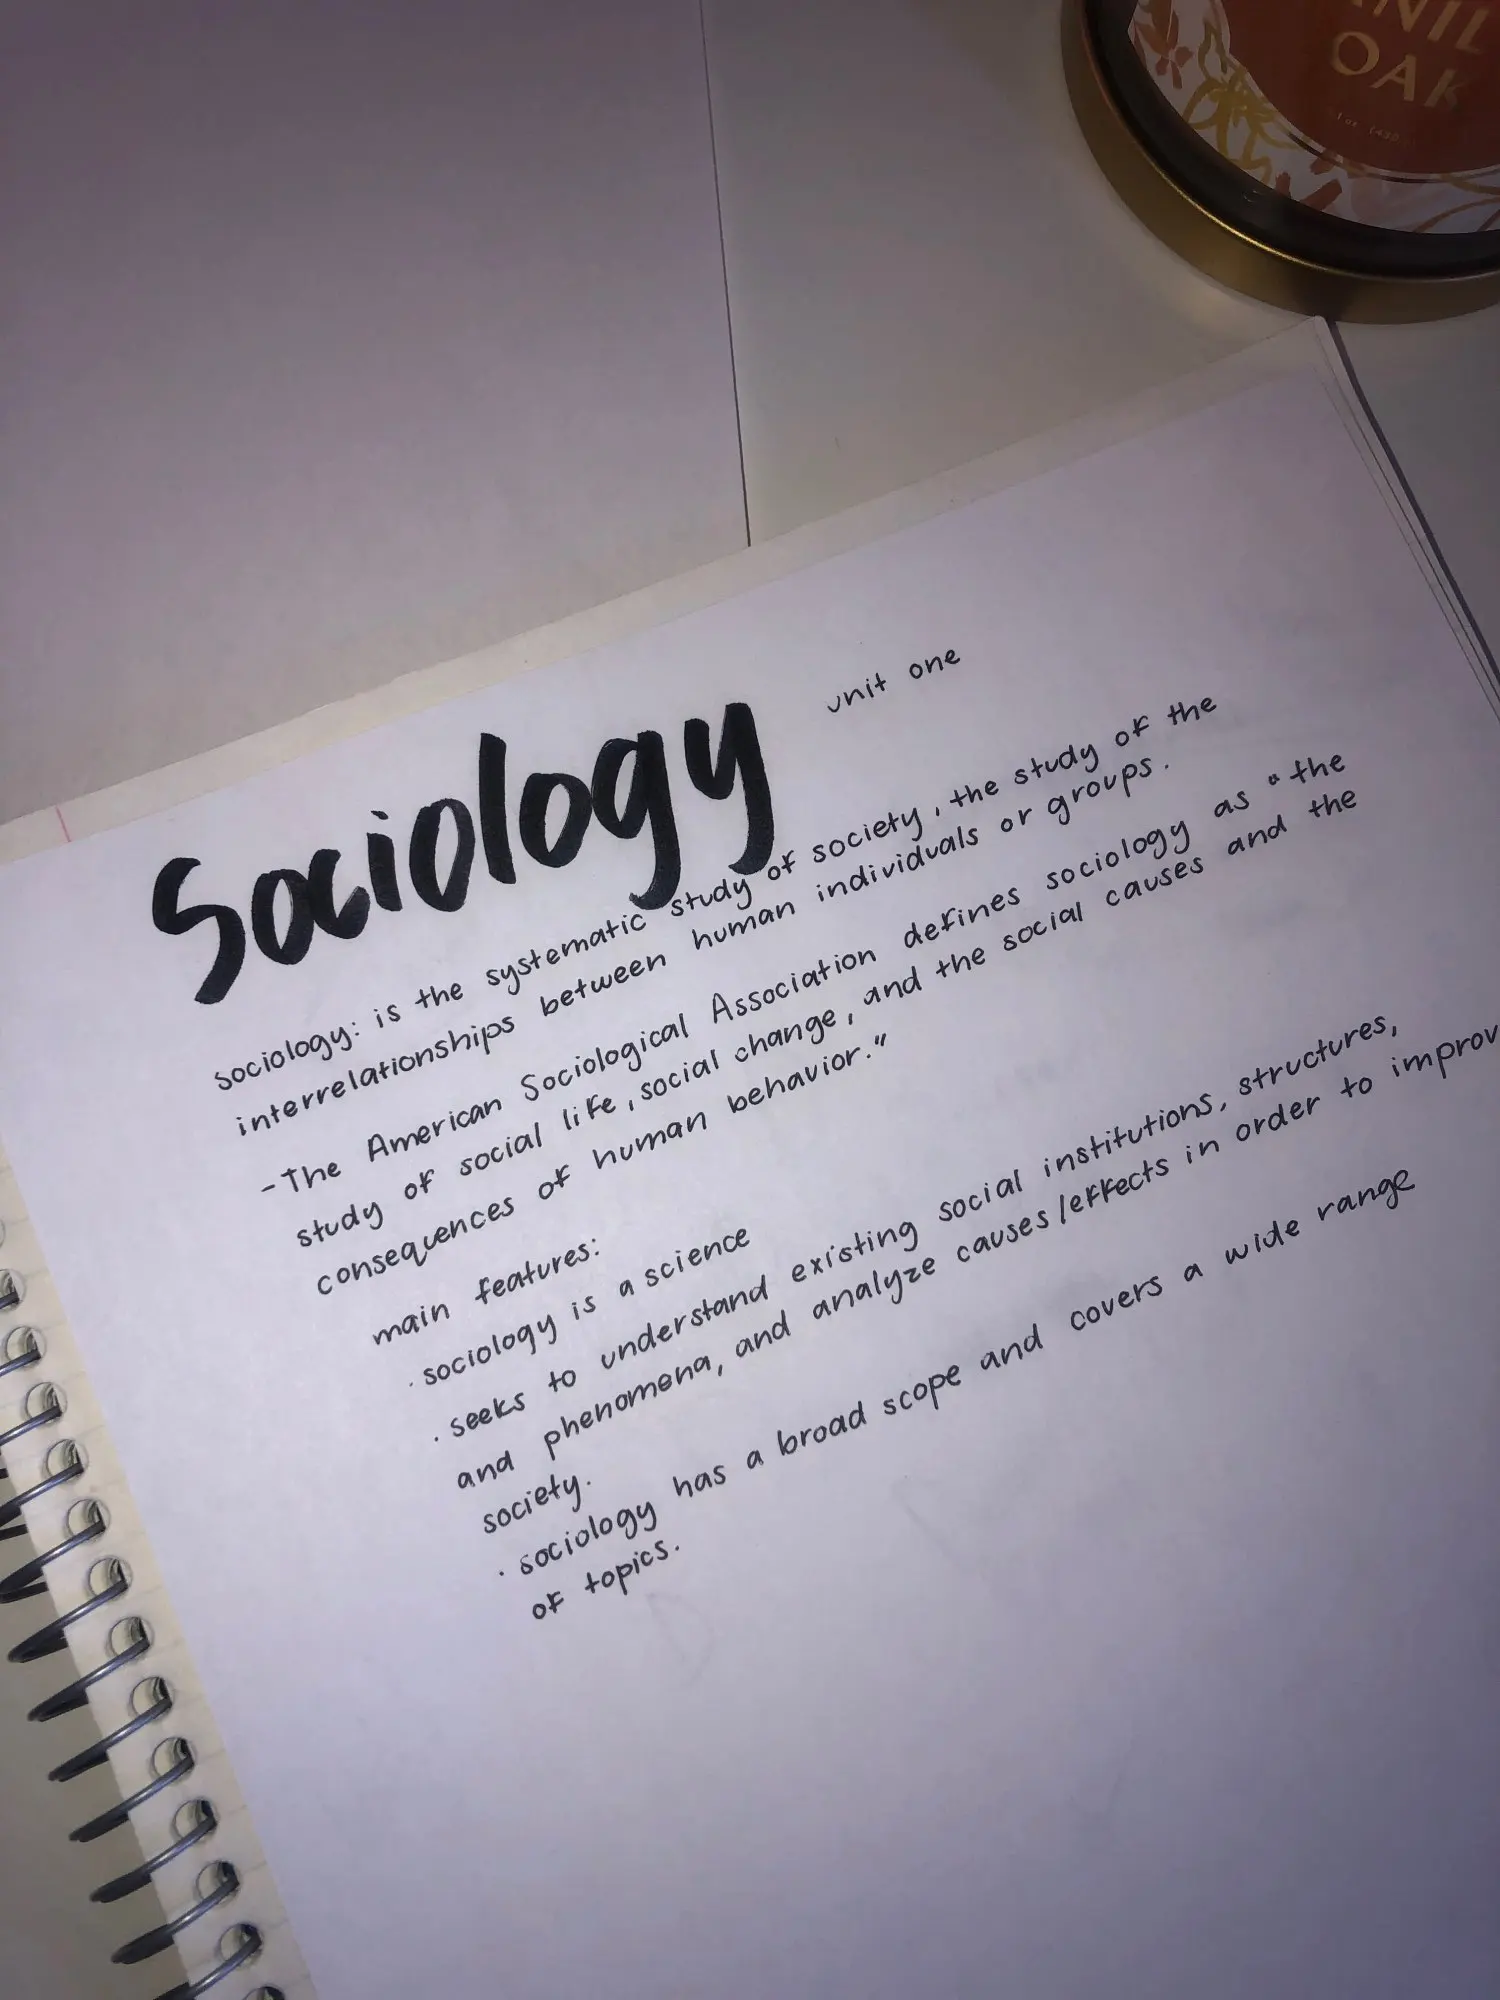 ANIL
OAK
Sociology
unit one
sociology: is the systematic study of society, the study of the
interrelationships between human individuals or groups.
-The American Sociological Association defines sociology as "the
study of social life, social change, and the social causes and the
consequences of human behavior."
main features:
· sociology is a science
· seeks to understand existing social institutions, structures,
and phenomena, and analyze causes/effects in order to improv
society.
· sociology has a broad scope and covers a wide range
of topics.